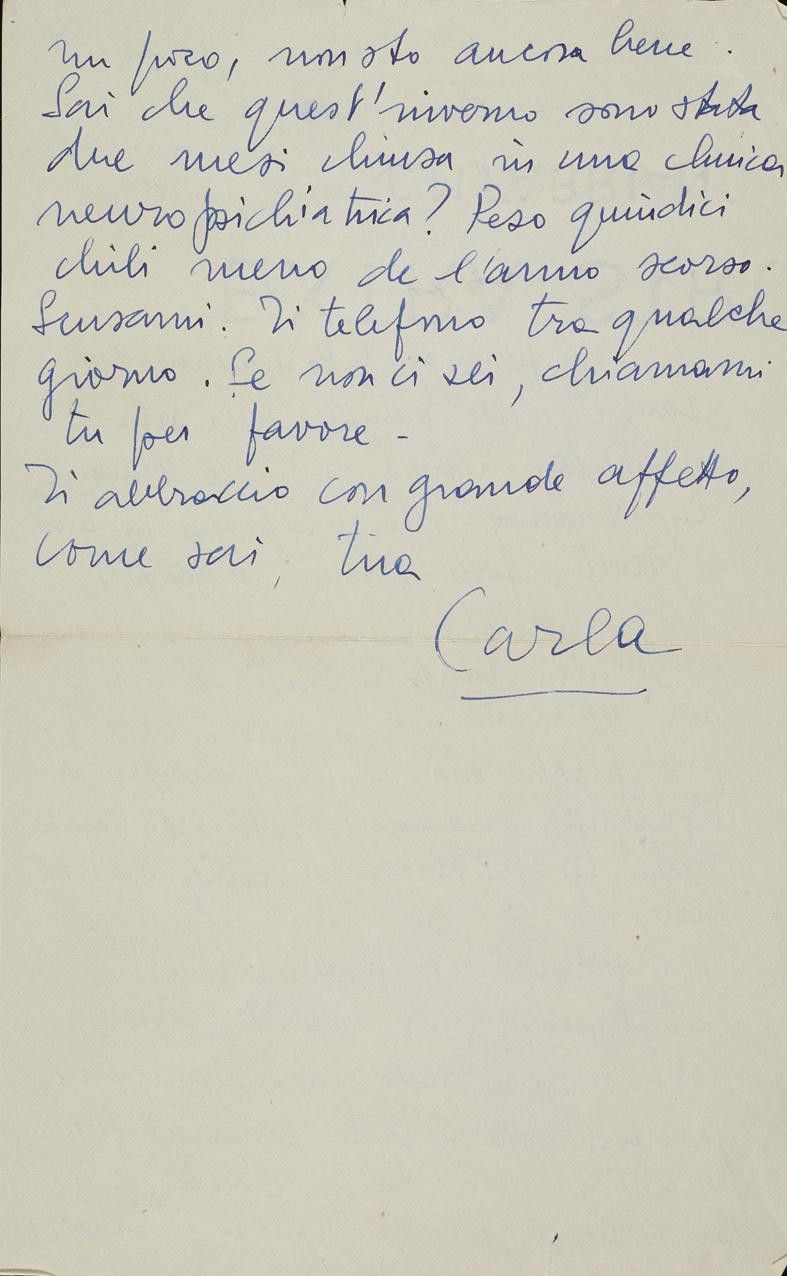 un poco, non sto ancora bene.
Sai che quest'inverno sono stata
due mesi chiusa in una clinica
neuropsichiatrica? Peso quindici
chili meno de l'anno scorso.
Scusami. Ti telefono tra qualche
giorno. Se non ci sei, chiamami
tu per favore -
Ti abbraccio con grande affetto,
come sai, tua
Carla